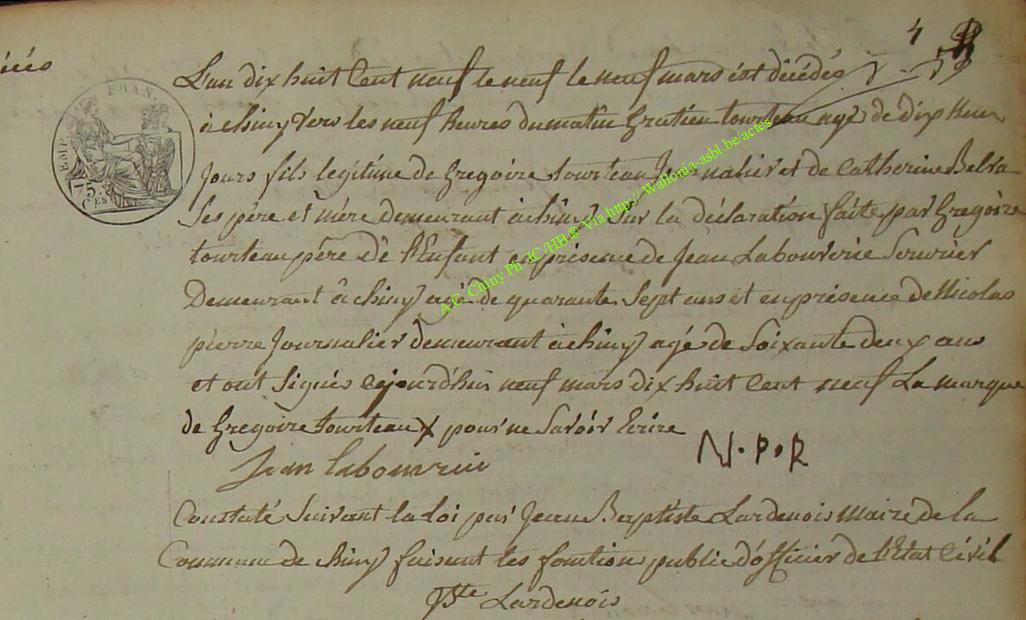 4
L'an dix huit Cent neuf le neuf le neuf mars est décédés
à chiny vers les neuf heures du matin Gratien tourteau agé de dix huit
Jours fils legitime de Gregoire tourteau Journalier et de Catherine Belva
Ses père et mère demeurant à chiny Sur la déclaration faite par Gregoire
tourteau père de l'Enfant en présence de Jean Labouverie Serurier
Demeurant à chiny agé de quarante Sept ans et en présence de Nicolas
pierre Journalier demeurant à chiny agé de Soixante deux ans
et ont Signés cejourd'hui neuf mars dix huit Cent neuf La marque
de Gregoire tourteau X pour ne Savoir Ecrire
N.P.R
Jean labouverie
Constaté Suivant la Loi par Jean Baptiste Lardenois maire de la
Commune de chiny faisant les fonctions public d'officier de l'Etat Civil
JBte Lardenois
EMP FRAN
75
A.G. Chiny Ph. JC /HB © Via http:// Wallonia-asbl.be/actes